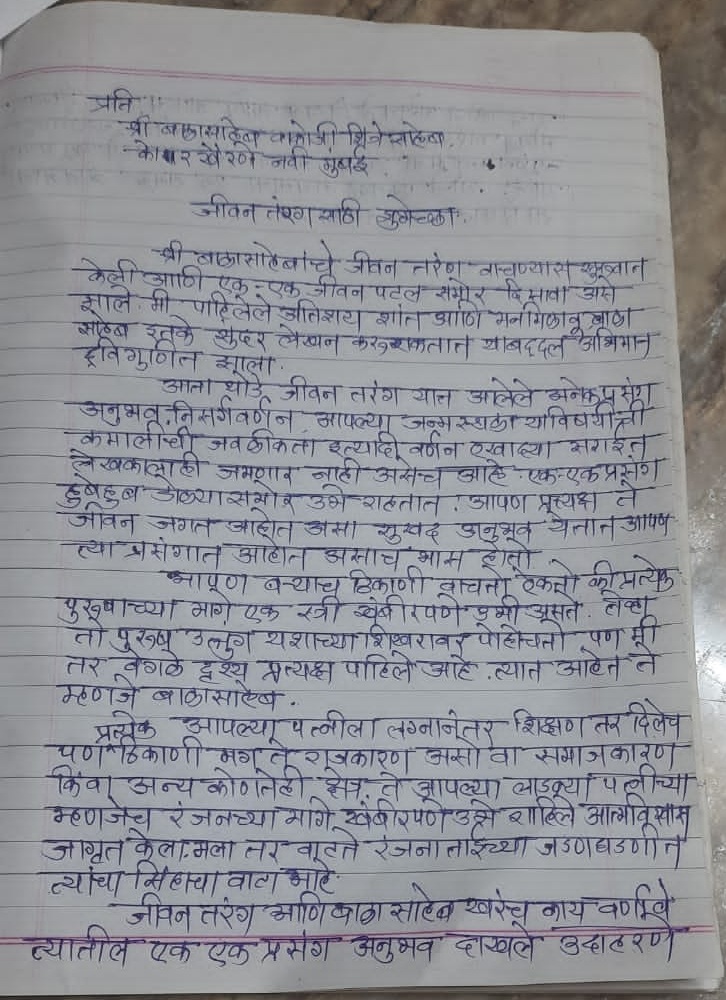 प्रति
श्री बाळासाहेब वाघोजी शित्रे साहेब.
कोपर खैरणे नवी मुंबई.
जीवन तरंग साठी शुभेच्छा.
श्री बाळासाहेबांचे जीवन तरंग वाचण्यास सुरुवात
केली आणि एक-एक जीवन पटल समोर दिसावा असे
झाले. मी पाहिलेले अतिशय शांत आणि मनमिळावू बाळा
साहेब इतके सुंदर लेखन करू शकतात याबद्दल अभिमान
द्विगुणित झाला.
आता थोडे जीवन तरंग यात आलेले अनेक प्रसंग
अनुभव, निसर्गवर्णन आपल्या जन्मस्थळा याविषयीची
कमालीची जवळीकता इत्यादी वर्णन एखाद्या सराईत
लेखकालाही जमणार नाही असेच आहे. एक-एक प्रसंग
हुबेहुब डोळ्या समोर उभे राहतात. आपण प्रत्यक्ष ते
जीवन जगत आहोत असा सुखद अनुभव येतात आपण
त्या प्रसंगात आहोत असाच भास होतो
आपण बऱ्याच ठिकाणी वाचतो ऐकतो की प्रत्येक
पुरुषाच्या मागे एक स्त्री खंबीरपणे उभी असते. तेव्हा
तो पुरुष उत्तुंग यशाच्या शिखरावर पोहोचतो पण मी
तर वेगळे दृश्य प्रत्यक्ष पाहिले आहे. त्यात आहेत ते
म्हणजे बाळासाहेब.
प्रत्येक आपल्या पत्नीला लग्नानंतर शिक्षण तर दिलेच
पण ठिकाणी मग ते राजकारण असो वा समाजकारण
किंवा अन्य कोणतेही क्षेत्र. ते आपल्या लाडक्या पत्नीच्या
म्हणजेच रंजनच्या मागे खंबीरपणे उभे राहिले आत्मविश्वास
जागृत केला. मला तर वाटते रंजना ताईंच्या जडणघडणीत
त्यांचा सिंहाचा वाटा आहे.
जीवन तरंग आणि बाळा साहेब खरेच काय वर्णावे
त्यातील एक एक प्रसंग अनुभव दाखले उदाहरणे